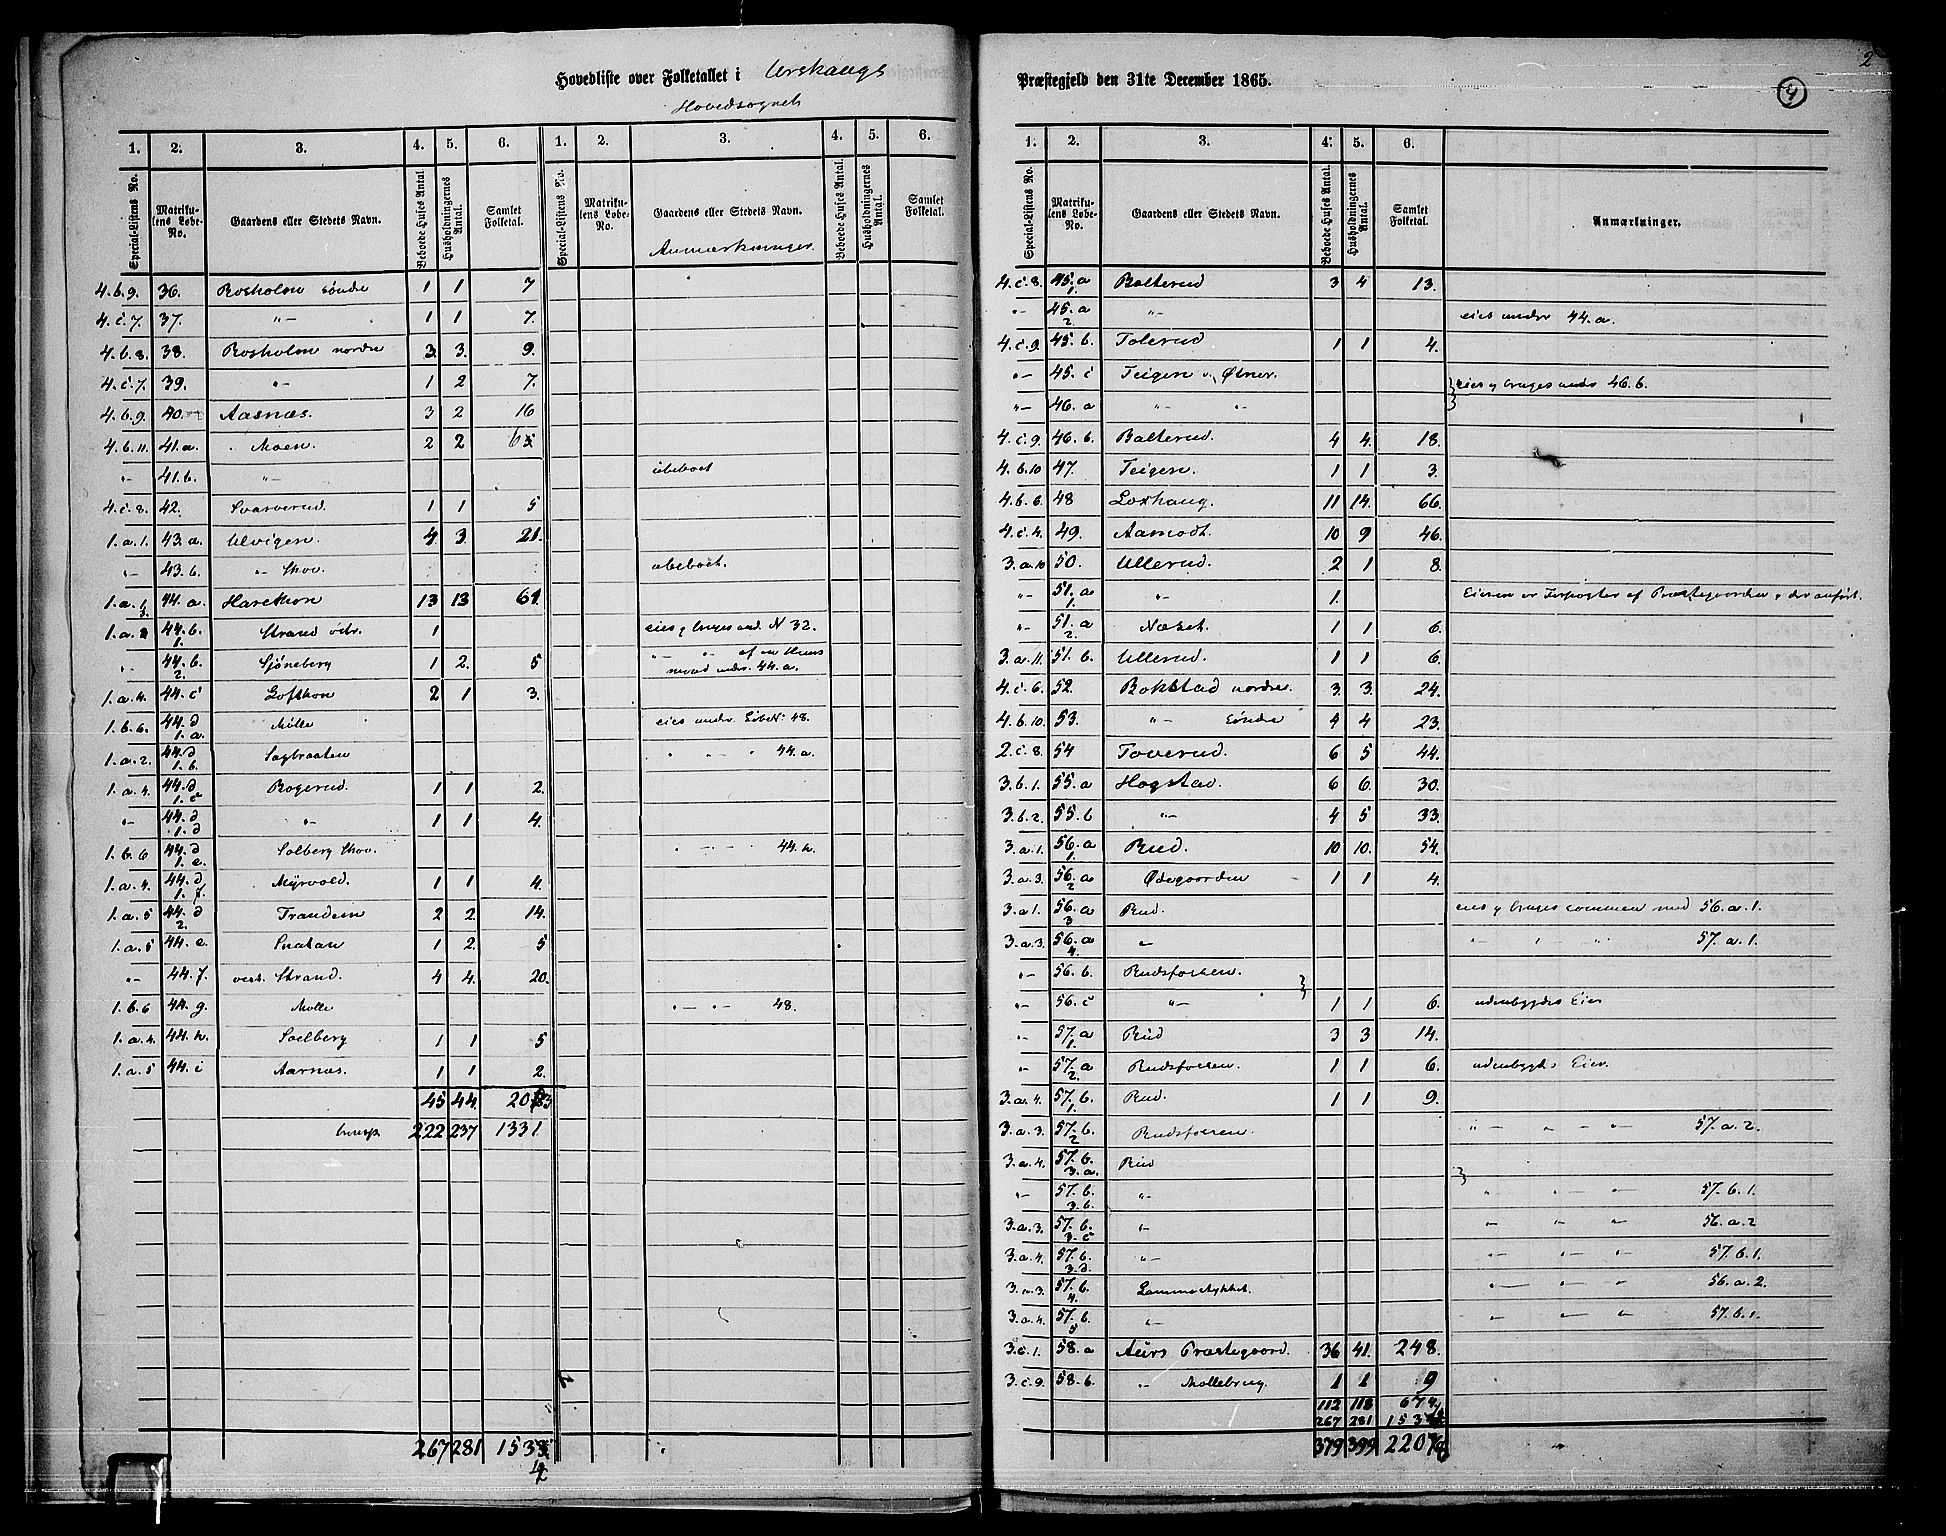 Hovedliste over Folketallet i Urskougs
Hovedsognet
1. 2. 3. 4. 5. 6. 1. 2. 3. 4. 5. 6.
Special-Listens No. Matrikulens Løbe-No. Gaardens eller Stedets Navn. Beboede Huses Antal. Husholdningernes Antal. Samlet Folketal. Special-Listens No. Matrikulens Løbe-No. Gaardens eller Stedets Navn. Beboede Huses Antal. Husholdningernes Antal. Samlet Folketal.
Anmærkninger.
4.b.9. 36. Rosholm søndre 1 1 7
4.c.7. 37. "- 1 1 7.
4.b.8. 38. Rosholm nordre 3. 3. 9.
4.c.7. 39. "- 1 2 7.
4.b.9. 40. Aasnæs. 3 2 16
4.b.11. 41.a. Moen. 2 2 6
"- 41.b. "- ubeboet
4.c.8. 42. Svarverud. 1 1 5
1.a.1. 43.a. Ulvigen. 4 3. 21.
"- 43.b. "- Skov. ubeboet.
1.a. 44.a. Harethon 13 13 61.
1.a. 44.b.1. Strand østr. 1 eies og bruges und. N 32.
"- 44.b.2. Sjøneberg 1 2. 5 under 44.a.
1.a.4. 44.c Lofthon 2 1 3.
1.b.6. 44.d 1.a. Mølle eies under LøbeNo 48.
1.a.2. 44.d 1.b. Sagbraaten " " " 44.a.
1.a.4. 44.d 1.c Bogerud. 1 1 2.
"- 44.d 1.d "- 1 1 4.
1.b.6 44.d 1.e. Solberg Skov. " - - 44.h.
1.a.4. 44.d 1.f. Myrvold. 1 1 4.
1.a.5 44.d 2. Trandem 2 2. 14.
1.a.5 44.e. Snatan 1 2. 5
"- 44.f. vest. Strand. 4 4. 20.
1.b.6 44.g. Mølle "- "- 48.
1.a.4. 44.h. Soelberg 1 1 5
1.a.5 44.i Aarnæs. 1 1 2.
45 44. 203
222 237 1331
267 281 153
Præstegjeld den 31te December 1865.
2
4
1. 2. 3. 4. 5. 6.
Special-Listens No. Matrikulens Løbe-No. Gaardens eller Stedets Navn. Beboede Huses Antal. Husholdningernes Antal. Samlet Folketal. Anmærkninger.
4.c.8. 45.a 1. Bolterud 3 4 13.
"- 45.a 2. "- eies under 44.a.
4.c.9. 45.b. Tolerud 1 1 4.
"- 45.c Teigen v. Østner. eies og bruges under 46.b.
"- 46.a "- "-
4.c.9. 46.b. Bolterud. 4 4. 18.
4.b.10 47. Teigen. 1 1 3.
4.b.6. 48 Loshaug. 11 14. 66.
4.c.4. 49. Aamodt. 10 9 46.
3.a.10 50. Ullerud. 2 1 8.
"- 51.a 1. "- 1. Eieren er Forpagter af Præstegaarden og der anført.
"- 51.a 2. Næset. 1 1 6.
3.a.11. 51.b. Ullerud. 1 1 6.
4.c.6. 52. Bokstad nordre. 3. 3. 24.
4.b.10. 53. "- søndre 4 4 23.
2.c.8. 54 Toverud. 6 5 44.
3.b.1. 55.a Hogstad. 6 6. 30.
3.b.2. 55.b "- 4 5 33.
3.a.1. 56.a 1. Rud. 10 10. 54.
3.a.3. 56.a 2 Ødegaarden 1 1 4.
3.a.1. 56.a 3 Rud. eies og bruges sammen med 56.a.1.
3.a.3. 56.a 4. "- "- "- "- 57.a.1.
"- 56.b. Rudsfossen.
"- 56.c "- 1 1 6. udenbygds Eier
"- 57.a 1. Rud 3 3 14.
"- 57.a 2. Rudsfossen. 1 1 6. udenbygds Eier.
3.a.4. 57.b. 1. Rud. 1 1 9.
3.a.3. 57.b. 2 Rudsfossen. "- "- "- 57.a.2.
3.a.4. 57.b. 3.a. Rud
"- 57.b. 3.b. "- "- "- "- 57.b.1.
3.a.3. 57.b. 3.c "- "- "- "- 56.a.2
3.a.4. 57.b. 3.d. "- "- "- "- 57.b.1.
3.a.3. 57.b. 4. Lammestykket. "- "- "- 56.a.2.
3.a.4. 57.b. 5 "- "- "- "- 57.b.1.
3.c.1. 58.a Aurs Præstegaard. 36 41. 248.
3.c.9. 58.b "- Møllebrug. 1 1 9
112 118 674
267 281 153
379 399 220